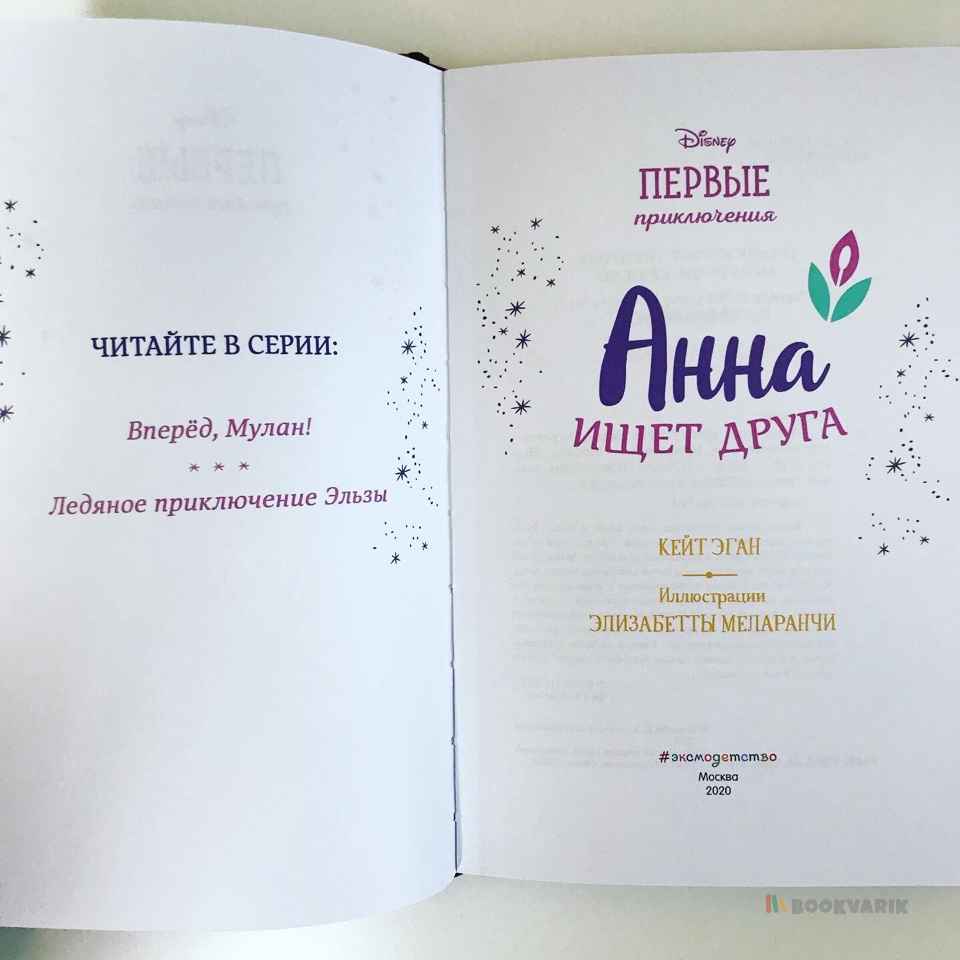 ЧИТАЙТЕ В СЕРИИ:
Вперёд, Мулан!
* * *
Ледяное приключение Эльзы
Disney
ПЕРВЫЕ
приключения
Анна
ИЩЕТ ДРУГА
КЕЙТ ЭГАН
Иллюстрации
ЭЛИЗАБЕТТЫ МЕЛАРАНЧИ
#эксмодетство
Москва
2020
BOOKVARIK